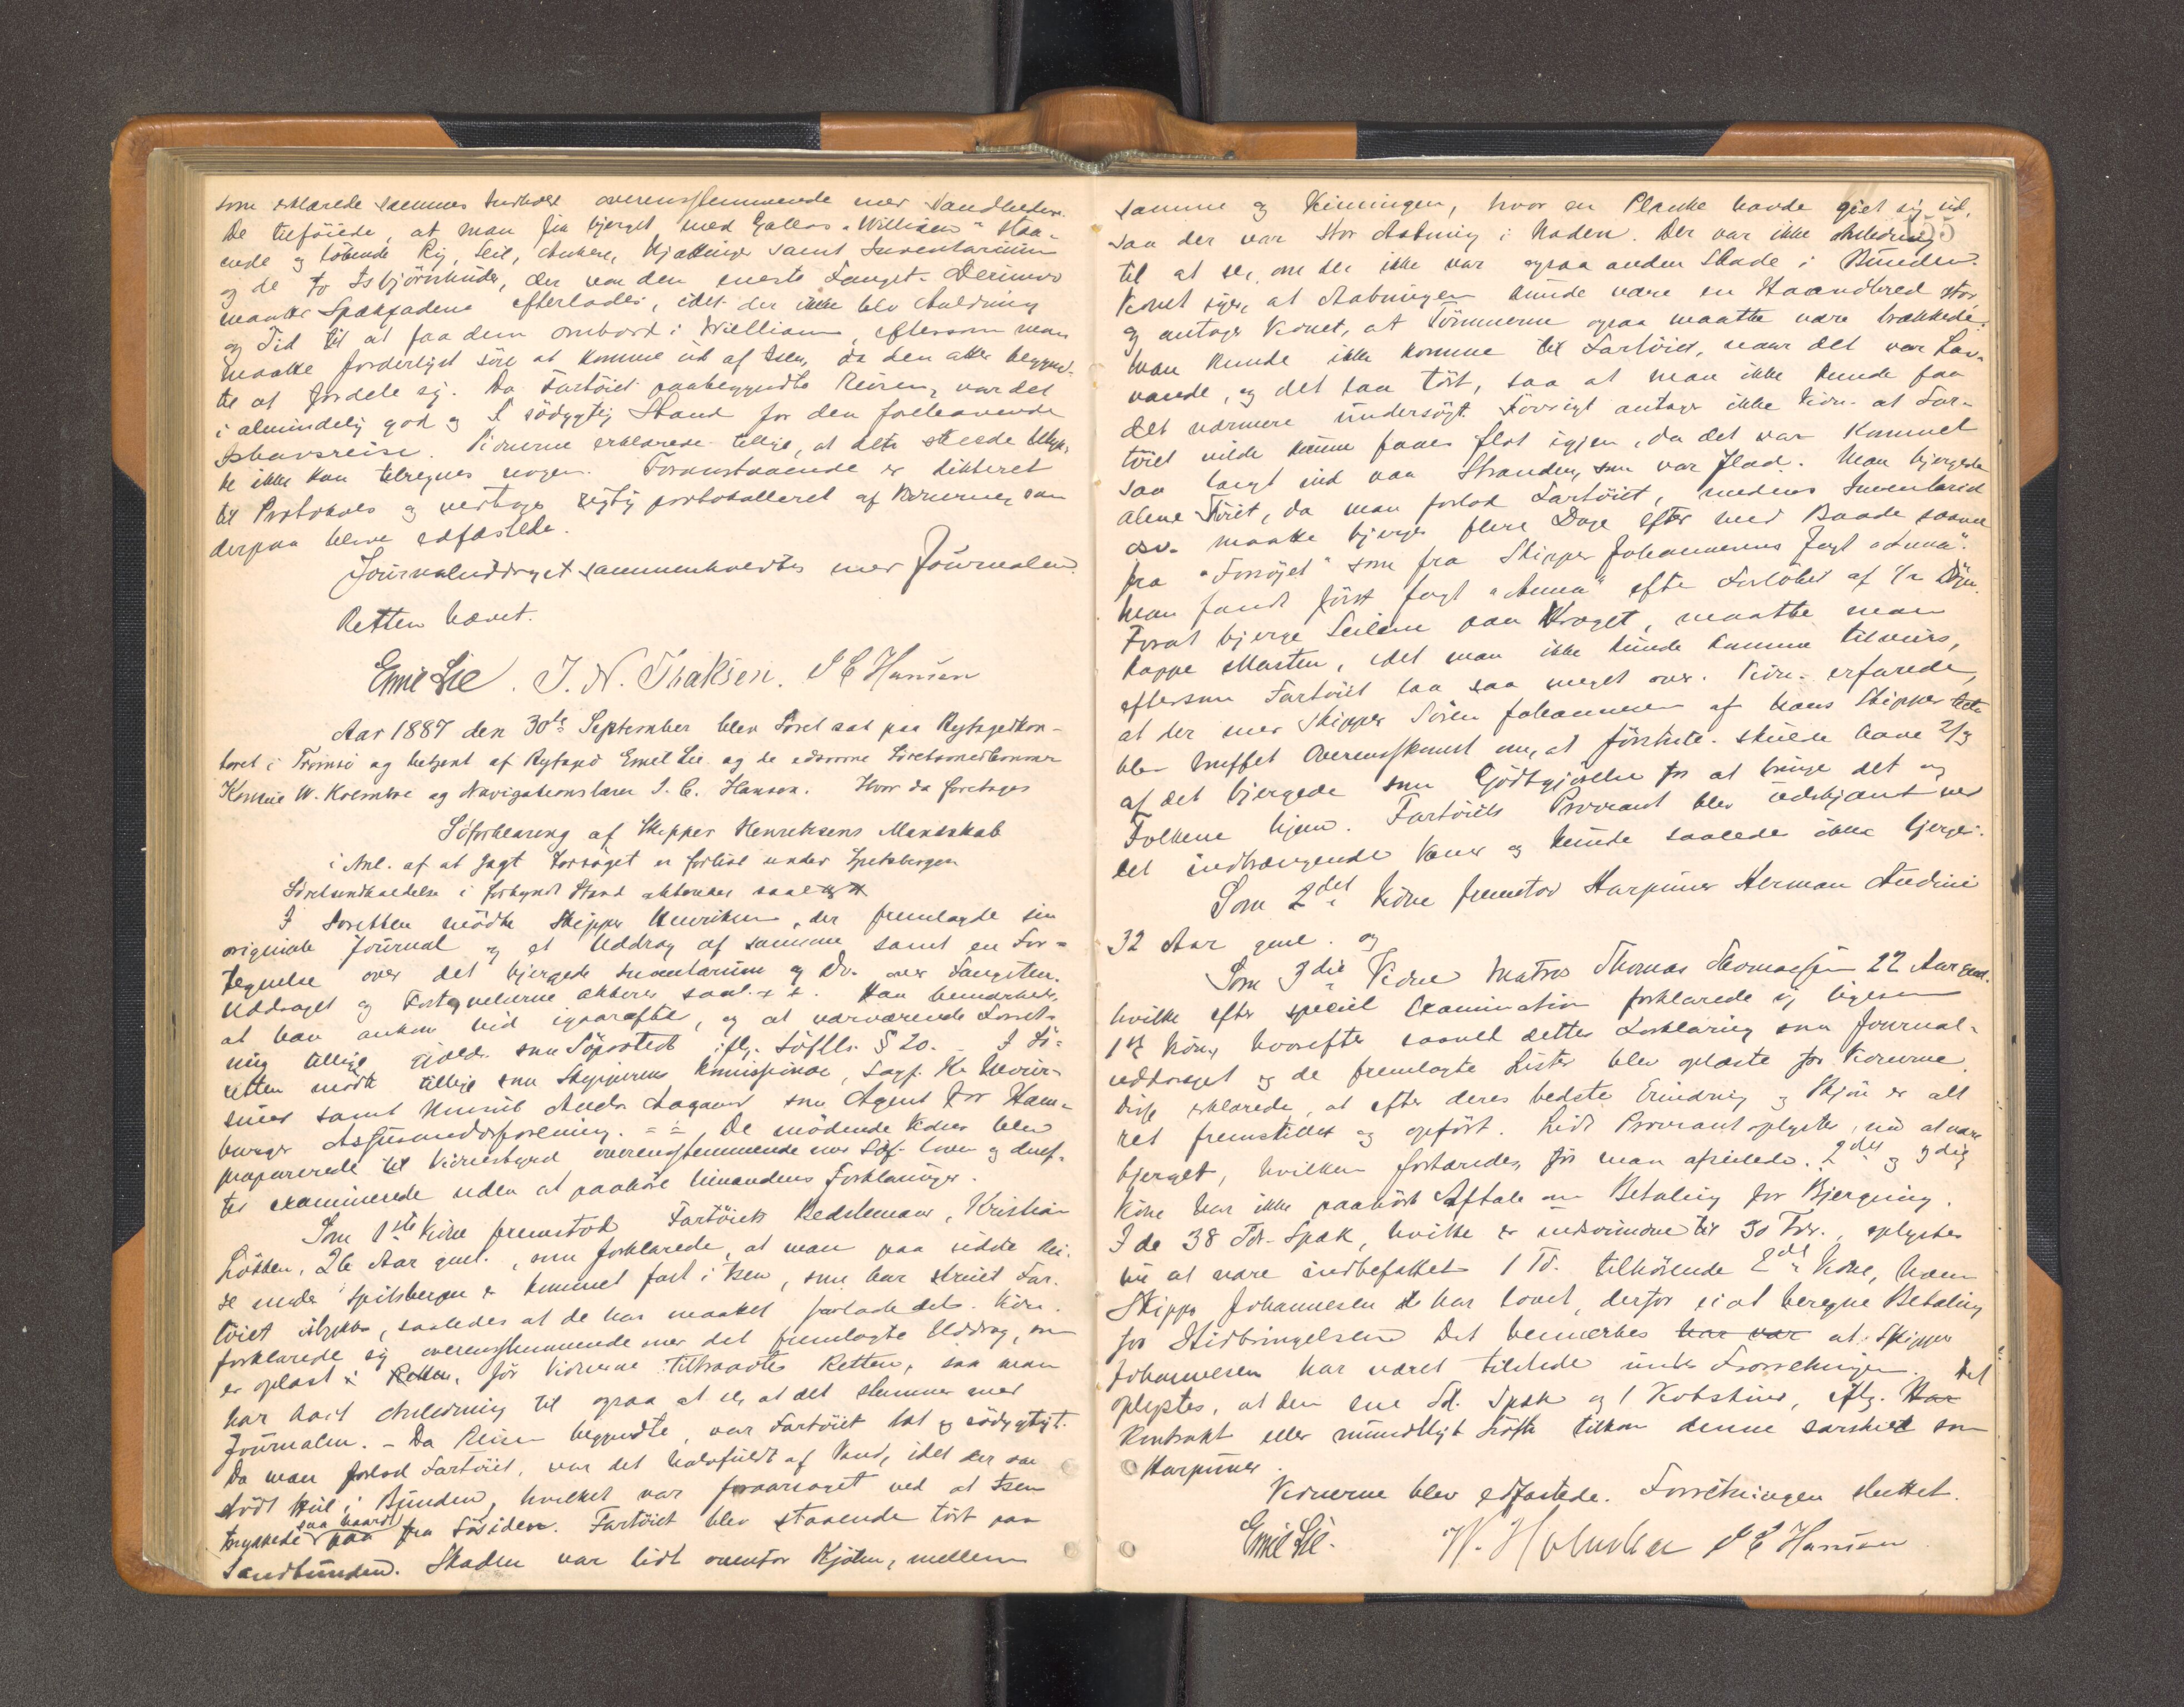 som erklærede sammes Indhold overensstemmende med Sandheden.
De tilföiede, at man fik bjerget med Galeas "William" staa-
ende og löbende Rig, Seil, Ankere, Kjættinger samt Inventarium
og de to Isbjörnhuder, der var den eneste Fangst. Derimod
maatte Spækfadene efterlades, idet der ikke blev Anledning
og Tid til at faa dem ombord i William, eftersom man
maatte forderligst söge at komme ud af Isen, da den atter begynd-
te at fordele sig. Da Fartöiet paabegyndte Reisen, var det
i almindelig god og södygtig Stand for den forehavende
Ishavsreise. Vidnerne erklærede tillige, at dette skeede Ulyk-
ke ikke kan tilregnes nogen. Foranstaaende er dikteret
til Protokols og vedtages rigtig protokolleret af Vidnerne, som
derpaa bleve edfæstede.
Journaluddraget sammenholdtes med Journalen.
Retten hævet.
Emil Lie. J. N. Isaksen. J C Hansen
Aar 1887 den 30te September blev Söret sat paa Byfogedkon-
toret i Tromsö og betjent af Byfoged Emil Lie og de edsvorne Söretsmedlemmer
Konsul W. Holmboe og Navigationslærer J. C. Hansen. Hvor da foretoges
Söforklaring af Skipper Henriksens Mandskab
i Anl. af at Jagt Forsöget er forlist under Spitsbergen
Söretsindkaldelse i forkyndt Stand akteres saal.
I Söretten mödte Skipper Henriksen, der fremlagde sin
originale Journal og et Uddrag af samme samt en For-
tegnelse over det bjergede Inventarium og Do. over Fangsten.
Uddraget og Fortegnelserne akteres saal. Han bemærkede,
at han ankom hid igaaraftes, og at nærværende Forret-
ning tillige gjælder som Söprotest ifl. Söfll. § 20. I Sö-
retten mödte tillige som Skipperens Kommissionær, Sagf.
samt Konsul Andr. Aagaard som Agent for Ham-
burger Assurandörforening. De mödende Vidner blev
præparerede til Vidnesbyrd overensstemmende med Söf. loven og dref-
tes examinerede uden at paahöre hinandens Forklaringer.
Som 1ste Vidne fremstod Fartöiets Bedstemand, Kristian
Lökken, 26 Aar gml., som forklarede, at man paa sidste Rei-
se under Spitsbergen er kommet fast i Isen, som har skruet Far-
töiet istykker, saaledes at de har maattet forlade det. Vidn.
forklarede sig overensstemmende med det fremlagte Uddrag, som
er oplæst i Retten, för Vidnerne tiltraadte Retten, saa man
har havt Anledning til ogsaa at se, at det stemmer med
Journalen. - Da Reisen begyndte, var Fartöiet tæt og södygtigt.
Da man forlod Fartöiet, var det halvfuldt af Vand, idet der var
stödt Hul i Bunden, hvilket var foraarsaget ved at Isen
trykkede saa haardt paa fra Sösiden. Fartöiet blev staaende tört paa
Sandbunden. Skaden var lidt ovenfor Kjölen, mellem
155
samme og Kimingen, hvor en Planke havde givet sig ud,
saa der var stor Aabning i Naden. Der var ikke Anledning
til at se, om der ikke var ogsaa anden Skade i Bunden.
Vidnet siger, at Aabningen kunde være en Haandbred stor,
og antager Vidnet, at Tömmerne ogsaa maatte være brækkede.
Man kunde ikke komme til Fartöiet, naar det var Lav-
vande, og det laa tört, saa at man ikke kunde faa
det nærmere undersögt. Forövrigt antager ikke Vidn. at Far-
töiet vilde kunne faaes flot igjen, da det var kommet
saa langt ind paa Stranden, som var flad. Man bjergede
alene Töiet, da man forlod Fartöiet, medens Inventariet
osv. maatte bjerges flere Dage efter med Baade saavel
fra "Forsöget" som fra Skipper Johannesens Jagt "Anna".
Man fandt först Jagt "Anna" efter Forlöbet af 1/2 Dögn.
Forat bjerge Seilene paa Vraget, maatte man
kappe Masten, idet man ikke kunde komme tilveirs,
eftersom Fartöiet laa saa meget over. Vidn. erfarede,
at der med Skipper Sören Johannesen af hans Skipper
blev truffet Overenskomst om, at förstnte. skulde have 2/3
af det bjergede som Godtgjörelse for at bringe det og
Folkene hjem. Fartöiets Proviant blev ödskjæmt ved
det indtrængende Vand og kunde saaledes ikke bjerges.
Som 2det Vidne fremstod Harpuner Herman Andini
32 Aar gml. og
Som 3die Vidne Matros Thomas Thomassen 22 Aar gml.
hvilke efter speciel Examination forklarede sig ligesom
1ste Vidne, hvorefter saavel dettes Forklaring som Journal-
uddraget og de fremlagte Lister blev oplæste for Vidnerne.
Disse erklærede, at efter deres bedste Erindring og Skjön er alt
ret fremstillet og opfört. Lidt Proviant oplystes, nu at være
bjerget, hvilken fortæredes, för man afseilede. 2det og 3die
Vidne har ikke paahört Aftale om Betaling for Bjergning.
I de 38 Tdr. Spæk, hvilke er indsvundne til 30 Tdr., oplystes
nu at være indbefattet 1 Td. tilhörende 2det Vidne, hvem
Skipper Johannesen har lovet, derfor ei at beregne Betaling
for Hidbringelsen. Det bemærkes har var at Skipper
Johannesen har været tilstede under Forretningen. Det
oplystes, at den ene Td. Spæk og 1 Kobskind, iflg. Har
Kontrakt eller mundtligt Löfte tilkom denne særskilt som
Harpuner.
Vidnerne blev edfæstede. Forretningen sluttet.
Emil Lie. W. Holmboe J C Hansen